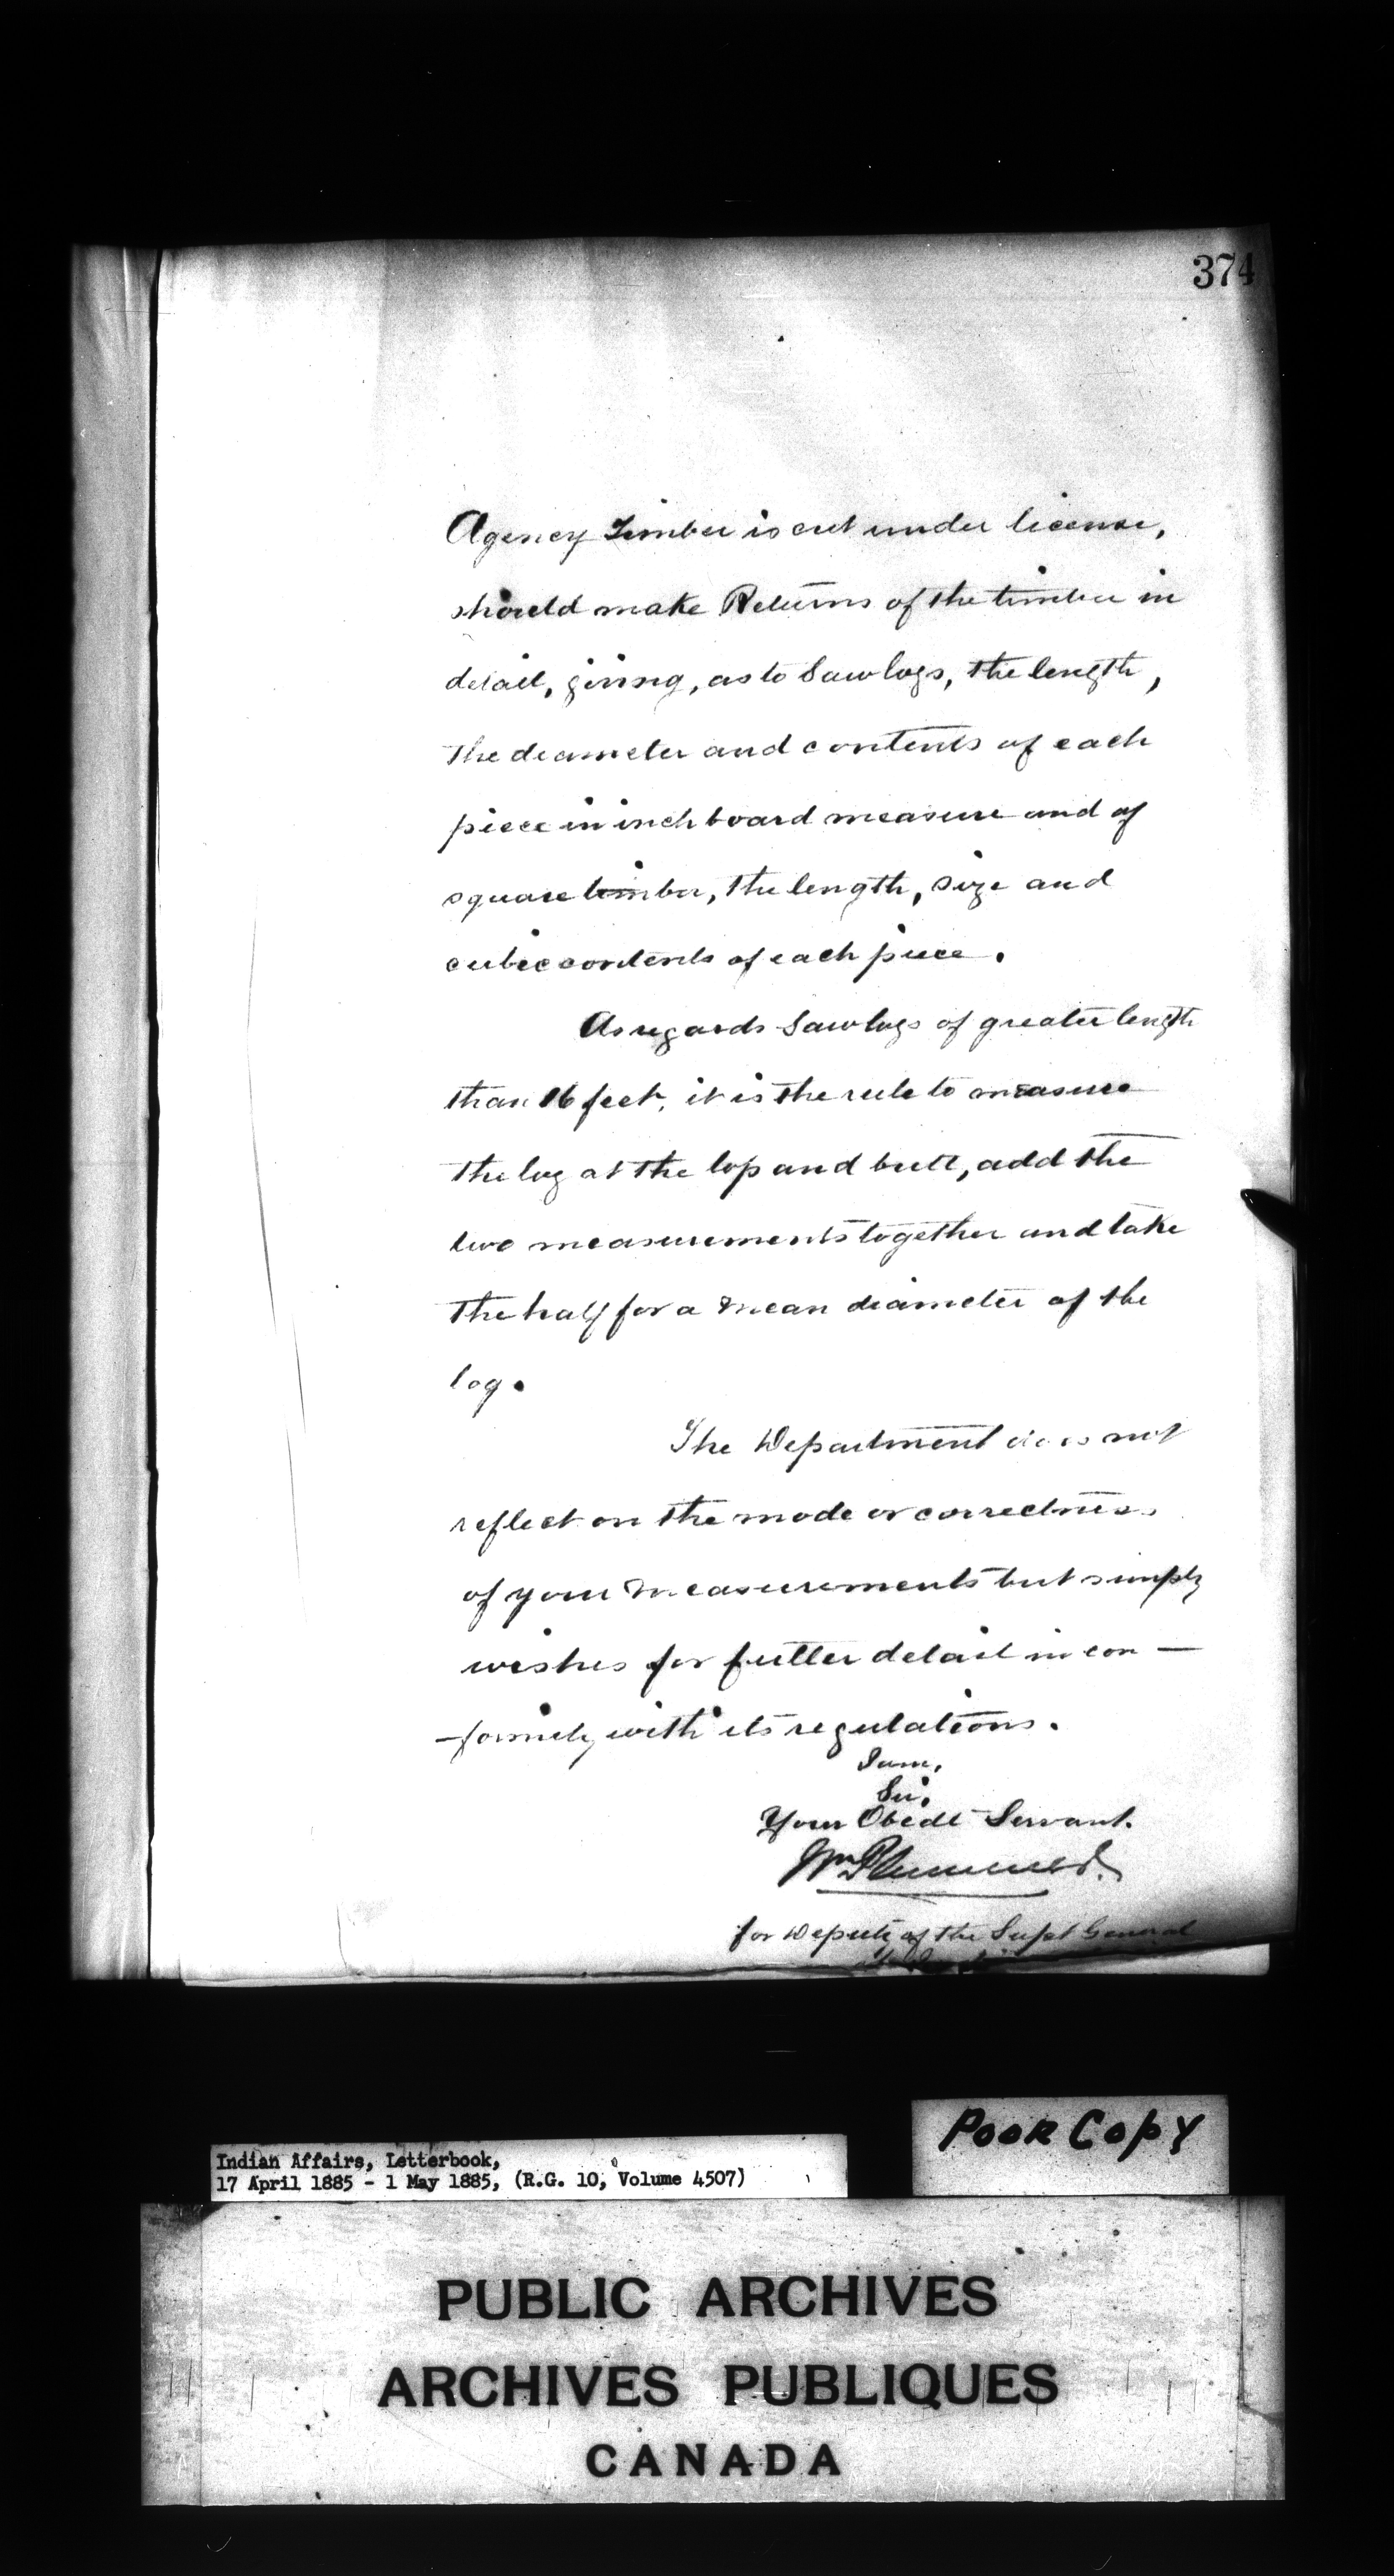 374
Agency Timber is cut under license,
should make Returns of the timber in
detail, giving, as to Saw logs, the length,
the diameter and contents of each
piece in inch board measure and of
square timber, the length, size and
cubic contents of each piece.
As regards Saw logs of greater length
than 16 feet, it is the rule to measure
the log at the top and butt, add the
two measurements together and take
the half for a mean diameter of the
log.
The Department does not
reflect on the mode or correctness
of your measurements but simply
wishes for fuller detail in con—
—formity with its regulations.
I am,
Sir,
Your Obedt Servant.
Wm Plummer
for Deputy of the Supt General
Poor Copy
Indian Affairs, Letterbook,
17 April 1885 - 1 May 1885, (R.G. 10, Volume 4507)
PUBLIC ARCHIVES
ARCHIVES PUBLIQUES
CANADA